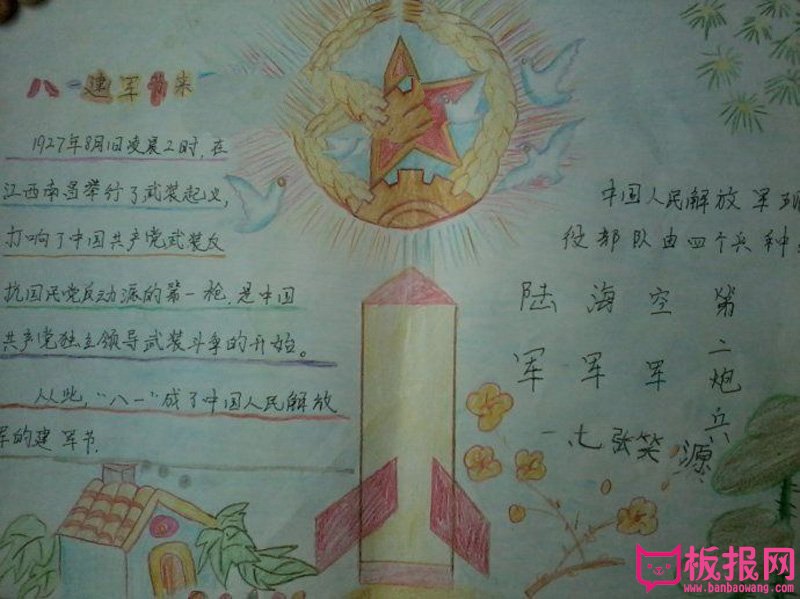 八一建军节来
1927年8月1日凌晨2时,在
江西南昌举行了武装起义,
打响了中国共产党武装反
抗国民党反动派的第一枪,是中国
共产党独立领导武装斗争的开始。
从此,“八一”成了中国人民解放
军的建军节.
中国人民解放军现
役部队由四个兵种
陆军
海军
空军
第二炮兵
一.七张笑源
板报网
www.banbaowang.com